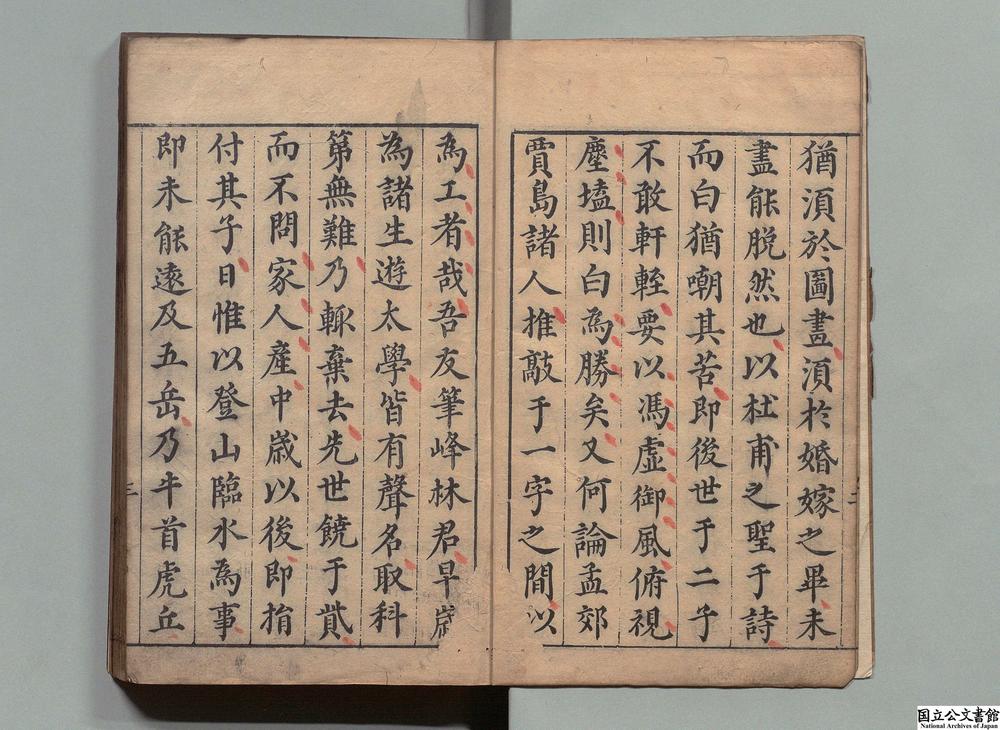 猶湏於圖畫湏於婚嫁之畢未
盡能脱然也以杜甫之聖于詩
而白猶嘲其苦即後世于二子
不敢軒輊要以馮虛御風俯視
塵壒則白為勝矣又何論孟郊
賈島諸人推敲于一字之間以
為工者哉吾友筆峰林君早歲
為諸生遊太學皆有聲名取科
第無難乃輙棄去先世饒于貲
而不問家人產中歲以後即捐
付其子日惟以登山臨水為事
即未能遠及五岳乃牛首虎丘
二
三
国立公文書館
National Archives of Japan